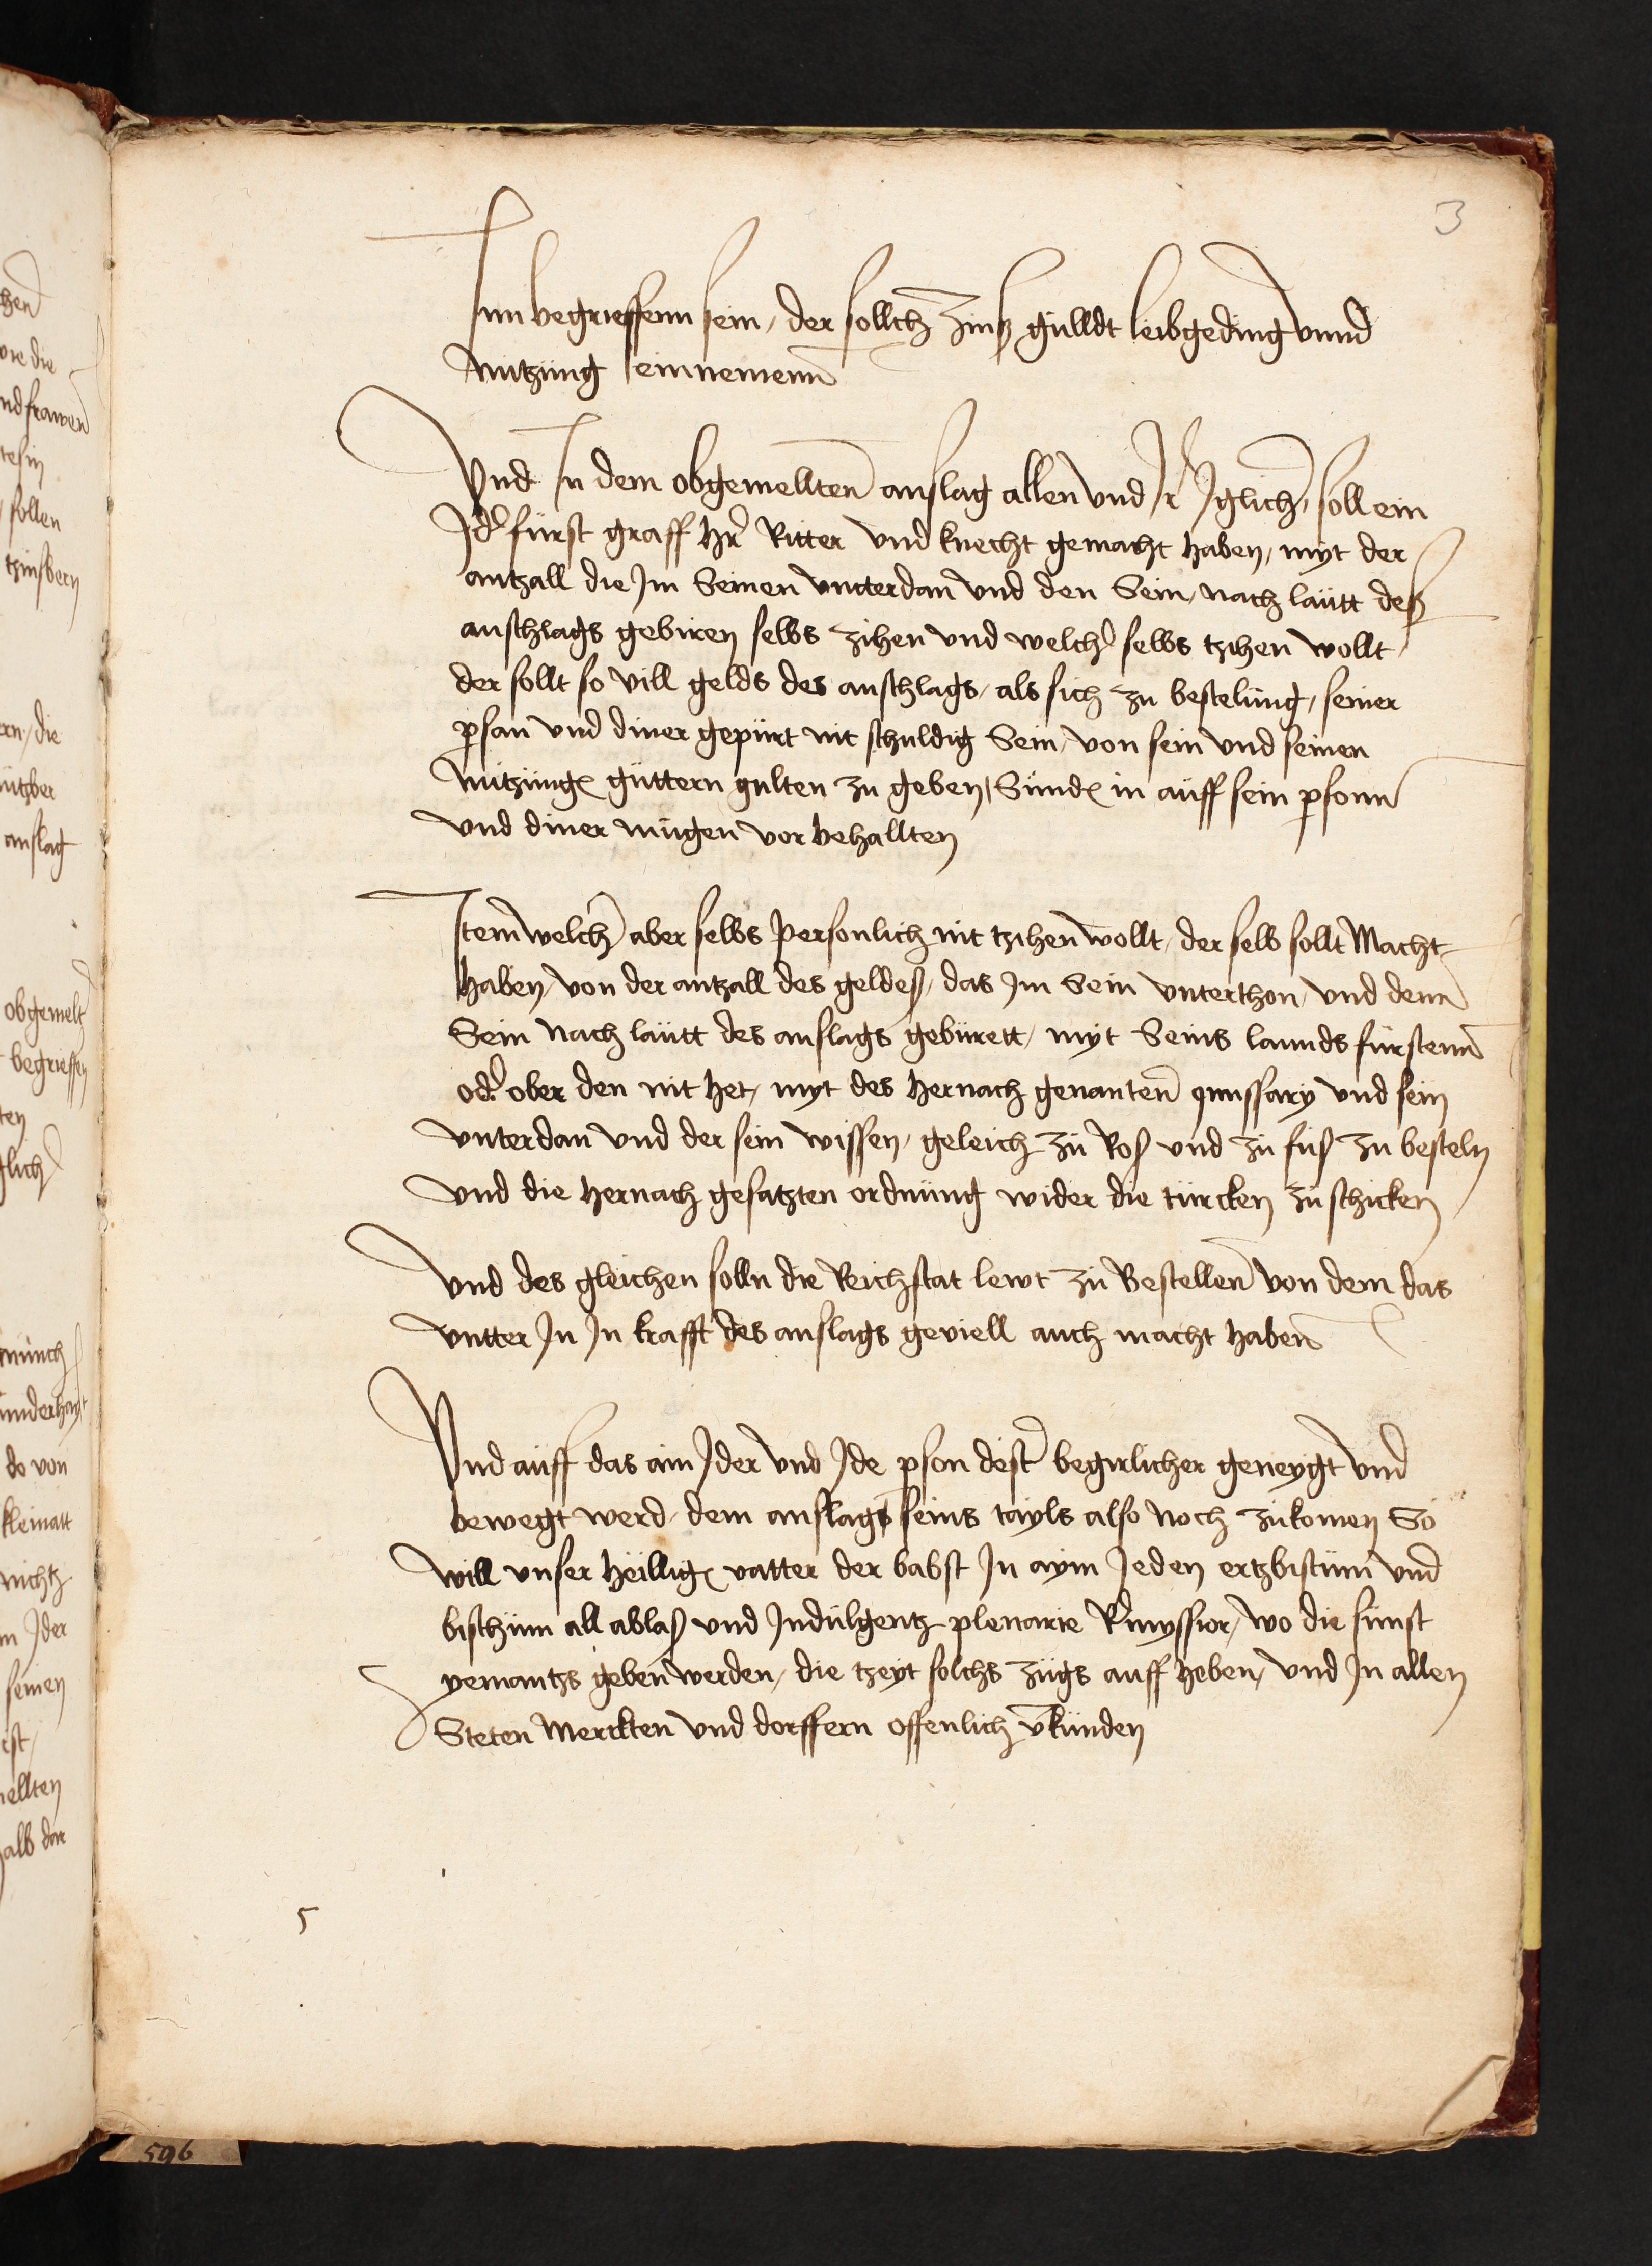 3
Inn begrieffenn sein / der sollch zinß gulldt leibgeding vnnd
nutzung einnemenn
Vnd In dem obgemellten anslag allen vnd Ir Iglich / soll ein
Ider furst graff her Ritter vnd knecht gemacht haben / myt der
antzall die Im Seinen vntterdan vnd den Sein / nach lautt deß
anschlags gebiren selbs zihen vnd welcher selbs tzihen wollt /
der sollt so vill gelds des anschlags / als sich zu bestelung / seiner
person vnd diner gepurt nit schuldig Sein / von sein vnd seinen
nutzung guttern gulten zu geben / Sunder in auff sein person
vnd diner mugen vor behallten
Item welcher aber selbs personlich nit tzihen wollt / der selb sollt Macht
haben / von der antzall des geldes / das Im Sein vnterthon / vnd denn
Sein nach lautt des anslags geburett / myt Seins lannds furstenn
oder ober den nit het / myt des hernach genanten und sein
vnterdan vnd der sein wissen / geleich zu Roß vnd zu fuß zu besteln
vnd die hernach gesatzten ordnung wider die turcken zu schicken
Vnd des gleichen solln die Reichstat lewt zu Bestellen von dem das
vntter In In krafft des anslags geviell auch macht haben
Vnd auff das ain Ider vnd Ide person dester begirlicher geneygt vnd
bewegt werd / dem anslags seins tayls also noch zukomen So
will vnser heillig vatter der babst In aym Ieden ertzbistum vnd
bischum all ablaß vnd Indulgentz plenarie / wo die sunst
yemantzs geben werden / die tzeyt solchs zugs auff heben / vnd In allen
Steten Merckten vnd dorffern offenlich verkunden
5
596